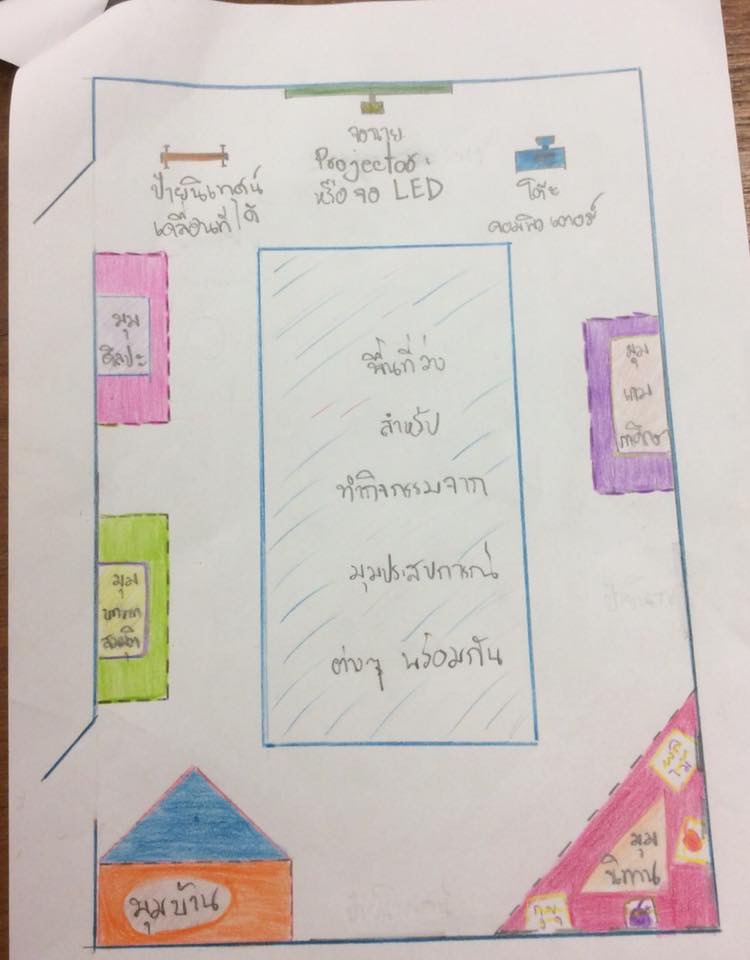 จอฉาย
Projector
หรือ จอ LED
ป้ายนิเทศน์
เคลื่อนที่ได้
โต๊ะ
คอมพิวเตอร์
มุม
ศิลปะ
พื้นที่ว่าง
สำหรับ
ทำกิจกรรมจาก
มุมประสบการณ์
ต่างๆ พร้อมกัน
มุม
เกม
การศึกษา
มุม
บทบาท
สมมุติ
มุม
นิทาน
มุมบ้าน